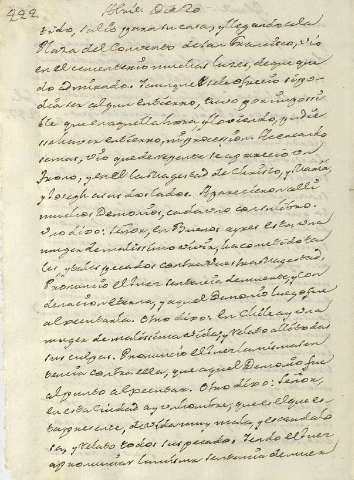 222.
vido, salio para su casa, y llegando a la
Plaza del Convento de San Francisco, vio
en el cementerio muchas luzes, de que que
do admirado. Y aunque se le ofrecio si po
dia ser algun entierro, tuvo por impossi
ble que en aquella hora, y lloviendo, pudie
se haver entierro, ni procession. Acercando
se mas, vio que de repente se aparecio un
Trono, y en el la Magestad de Christo, y Maria,
y Joseph a sus dos lados. Aparecieron alli
muchos Demonios, cada uno con su libro.
Uno dixo: Señor, en Buenos ayres esta una
muger de malissima vida, ha cometido ta
les y tales pecados contra Vuestra Magestad.
Pronuncio el Juez sentencia de muerte, y con
denacion eterna, y aquel Demonio luego fue
a executarla. Otro dixo: En Chile ay una
muger de malissima vida, y relato alli todas
sus culpas. Pronuncio el Juez la misma sen
tencia contra ella, que aquel Demonio fue
al punto a executar. Otro dixo: Señor,
en esta Ciudad ay un hombre, que es el que es
ta presente, de vida muy mala, y escandalo
sa, y relato todos sus pecados. Yendo el Juez
a pronunciar la misma sentencia de muer